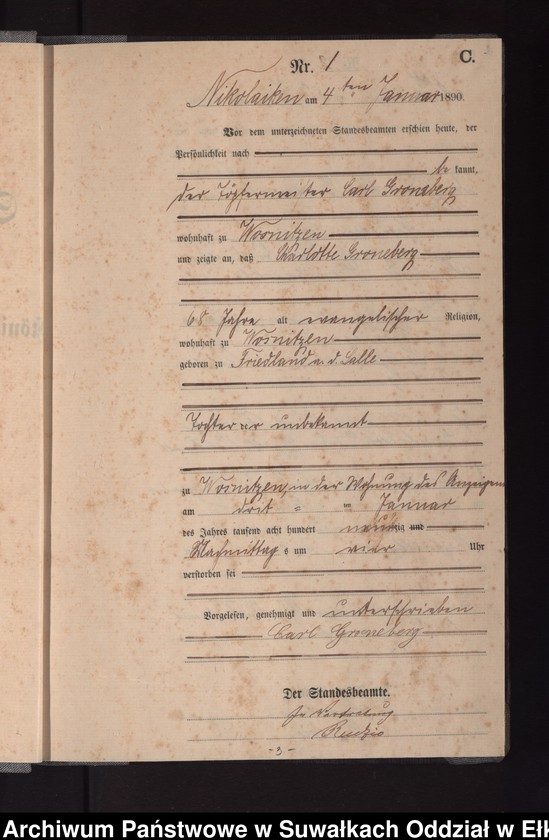 C.
Nr. 1
Nikolaiken am 4ten Januar 1890.
Vor dem unterzeichneten Standesbeamten erschien heute, der
Persönlichkeit nach
be kannt,
der Töpfermeister Carl Groneberg
wohnhaft zu Wosnitzen
und zeigte an, daß Charlotte Groneberg
68 Jahre alt evangelischer Religion,
wohnhaft zu Wosnitzen
geboren zu Friedland a. d. Salle
Tochter unbekannt
zu Wosnitzen, in der Wohnung des
am drit = im Januar
des Jahres tausend acht hundert neunzig und
Nachmittag s um vier Uhr
verstorben sei
Vorgelesen, genehmigt und unterschrieben
Carl Groneberg
Der Standesbeamte.
In Vertretung
- 3 -
Archiwum Państwowe w Suwałkach Oddział w Ełk